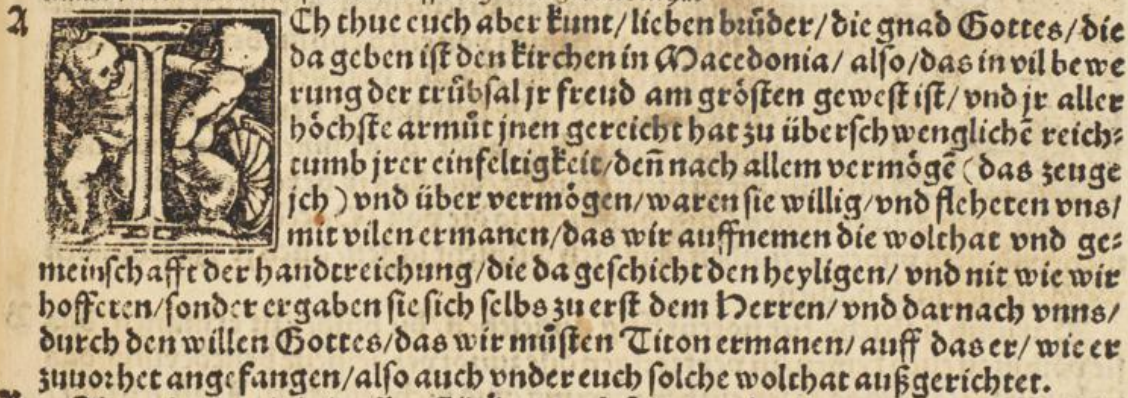 A
ICh thue euch aber kunt/ lieben brůder/ die gnad Gottes/ die
da geben ist den kirchen in Macedonia/ also/ das in vil bewe
rung der trůbsal jr freud am grösten gewest ist/ vnd jr aller
höchste armůt jnen gereicht hat zu überschwenglichē reich⸗
tumb jrer einfeltigkeit/ deñ nach allem vermögē (das zeuge
jch) vnd über vermögen/ waren sie willig/ vnd fleheten vns/
mit vilen ermanen/ das wir auffnemen die wolthat vnd ge⸗
meinschafft der handtreichung/ die da geschicht den heyligen/ vnd nit wie wir
hoffeten/ sonder ergaben sie sich selbs zu erst dem Herren/ vnd darnach vnns/
durch den willen Gottes/ das wir můsten Titon ermanen/ auff das er/ wie er
zuuor het angefangen/ also auch vnder euch solche wolthat außgerichtet.